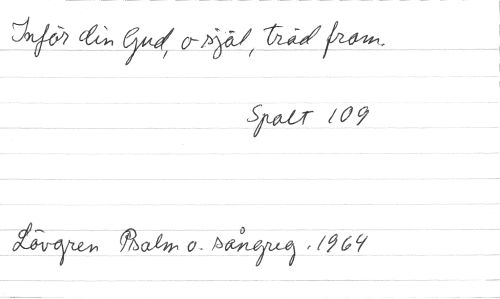 Inför din Gud, o själ, träd fram.
Spalt 109
Lövgren Psalm o. sångreg. 1964